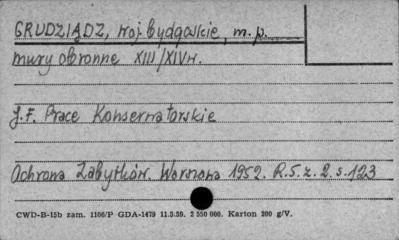 GRUDZIĄDZ, woj. bydgoskie, m. p.
mury obronne XIII/XIVw.
J.F. Prace Konserwatorskie
Ochrona Zabytków. Warszawa 1952. R.5. z. 2. s. 123
CWD-B-15b zam. 1106/P GDA-1479 11.3.59. 2 550 000. Karton 200 g/V.